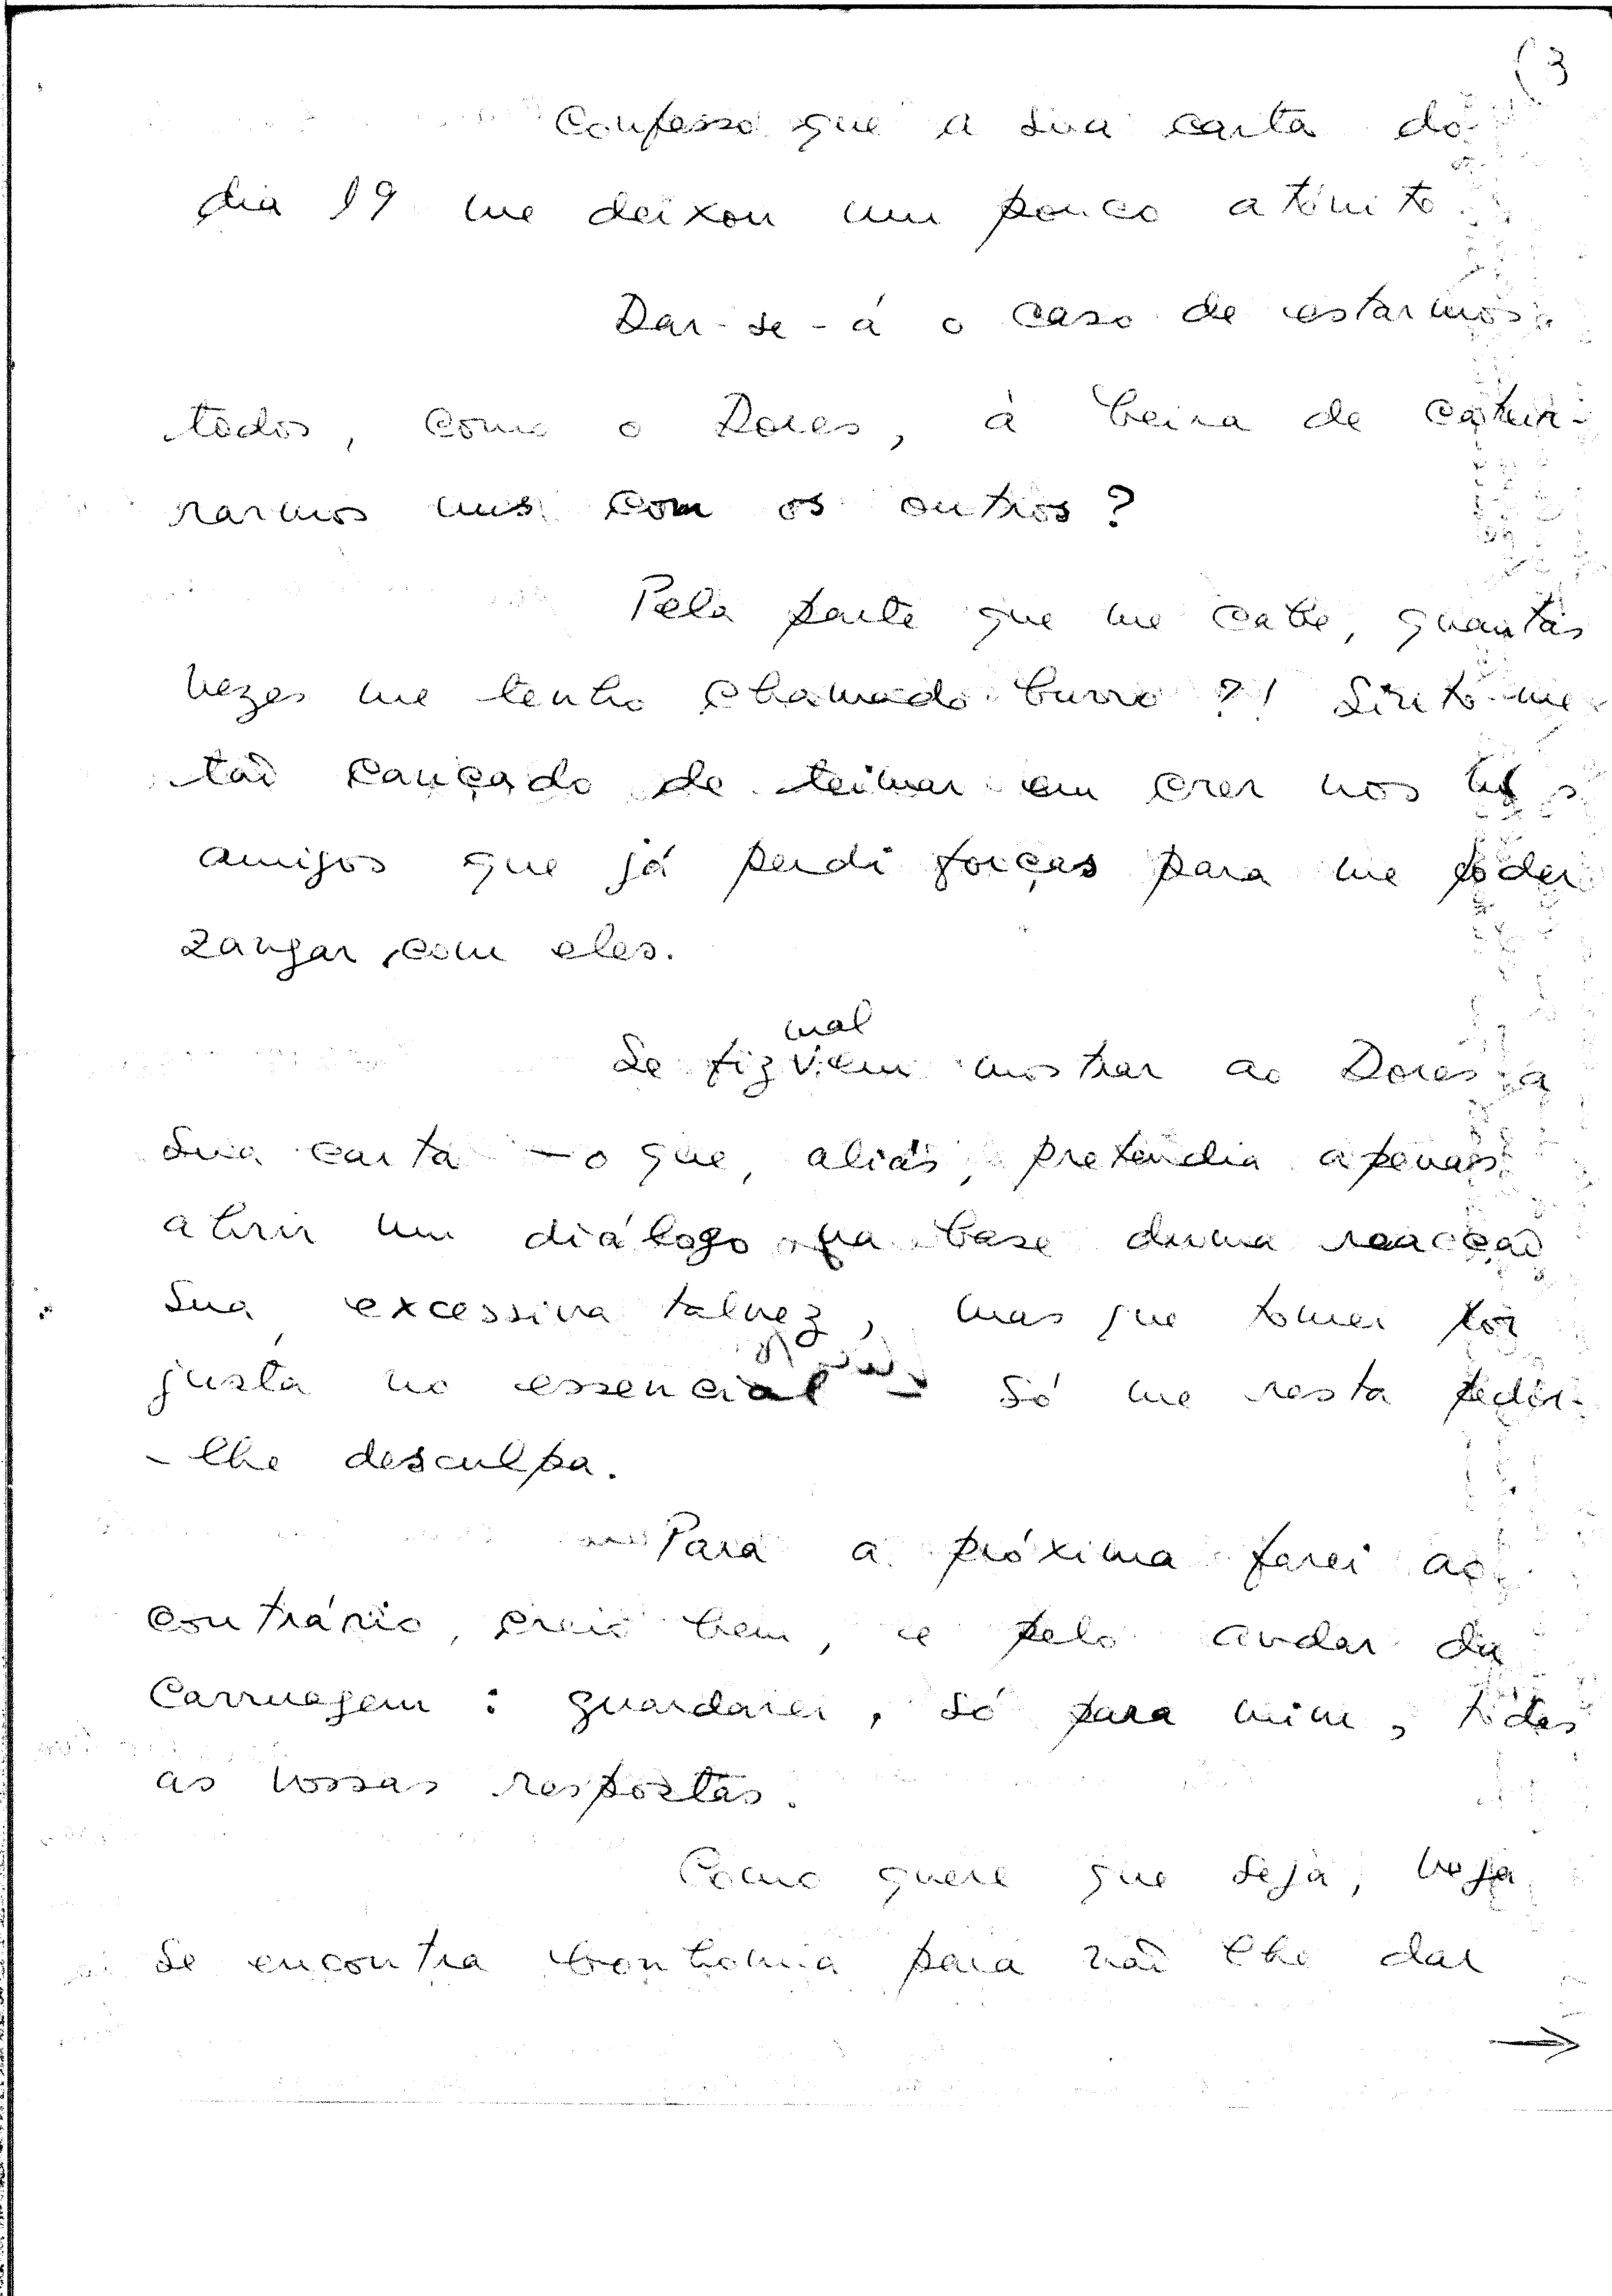 (3
Confesso que a sua carta do
dia 19 me deixou um pouco atónito.
Dar-se-á o caso de estarmos
todos, como o Dores, à beira de
rarmos uns com os outros?
Pela parte que me cabe, quantas
vezes me tenho chamado burro?! Sinto-me
tão cançado de teimar em crer nos
amigos que já perdi forças para me poder
zangar com eles.
mal
Se fiz em mostrar ao Dores a
sua carta — o que, aliás, pretendia apenas
abrir um diálogo na base duma reacção
sua excessiva talvez, mas que tomei por
justa no essencial — só me resta pedir-
-lhe desculpa.
Para a próxima farei ao
contrário, creio bem, e pelo andar da
carruagem: guardarei, só para mim, todas
as vossas respostas.
Como quere que seja, veja
se encontra bonhomia para não lhe dar
→